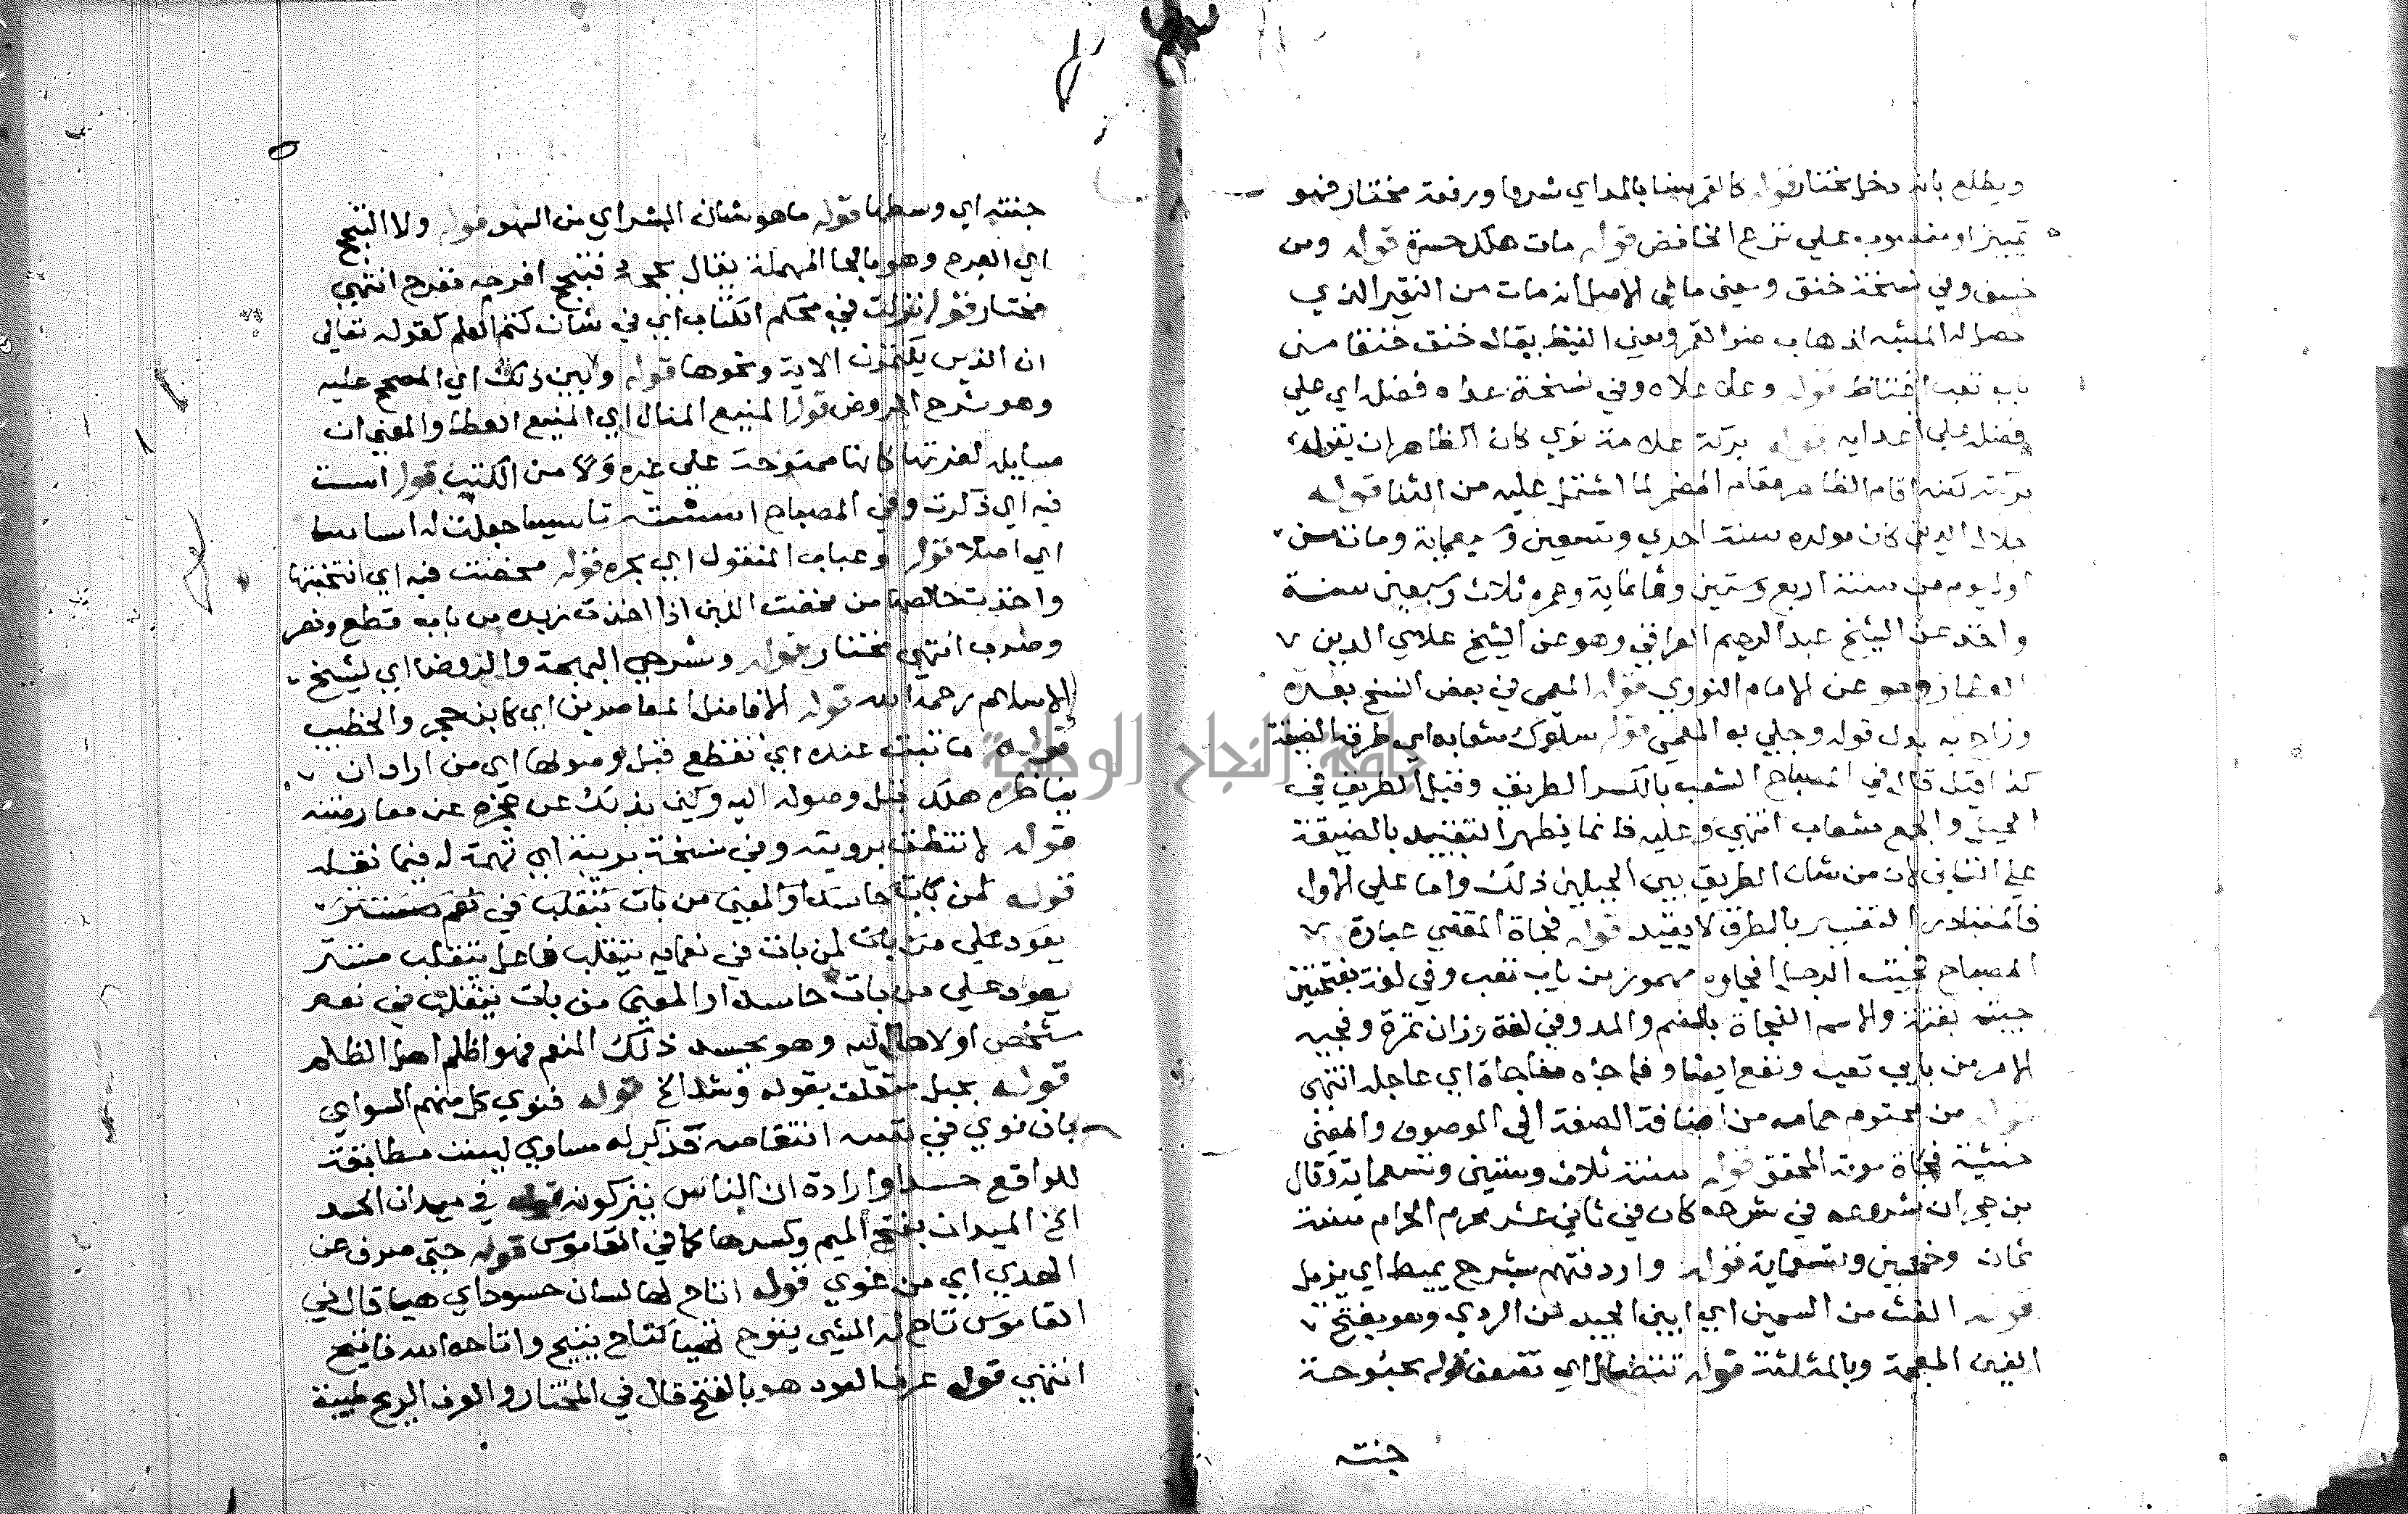 ويطلع بابه دخل مختار قوله كالقمر سنا بالمد اي شرفا ورفعة مختار فهو
تمييز او منصوب على نزع الخافض قوله مات هلك حسرة قوله ومن
خسف وفي نسخة خنق ومعنى ما في الاصل انه مات من النقير الذي
حصل له المشبه اذهاب ضوء القمر ومعنى الغيظ يقال خنق خنقا من
باب تعب اغتاظ قوله وعلا علاه وفي نسخة عداه فضل اي على
فضله على اعدايه قوله بركة علامة نوي كان الظاهر ان يقول
بركته لكنه اقام الظاهر مقام المضمر لما اشتمل عليه من الثنا قوله
جلال الدين كان مولده سنة احدي وتسعين وسبعماية ومات من
اول يوم من سنة اربع وستين وثمانماية وعمره ثلاث وسبعين سنة
واخذ عن الشيخ عبد الرحيم العراقي وهو عن الشيخ علاي الدين
العطار وهو عن الامام النووي قوله المعمى في بعض النسخ بعده
وزاح به بدل قوله وجلي به المعمى قوله سلوك شعابه اي طرقه الضيقة
كذا قيل قال في المصباح الشعب بالكسر الطريق وقيل الطريق في
الجبل والجمع شعاب انتهى وعليه فانما يظهر التقييد بالضيقة
على الثاني لان من شان الطريق بين الجبلين ذلك واما على الاول
فالمتبادر التفسير بالطرق لا يقيد قوله فجاة المقتي عبارة
المصباح فجيت الرجل افجاوه مهموز من باب تعب وفي لغة بفتحتين
جيته بغتة والاسم الفجاة بالضم والمد وفي لغة وزان تمرة وفجيه
الامر من بابي تعب ونفع ايضا وفاجاه مفاجاة اي عاجله انتهى
قوله من محتوم حمامه من اضافة الصفة الى الموصوف والمعنى
خشية فجاة موته المحقق قوله سنة ثلاث وستين وتسعماية وقال
بن حجر ان شروعه في شرحه كان في ثاني عشر محرم الحرام سنة
ثمان وخمسين وتسعماية قوله واردفتهم بشرح يميط اي يزيل
قوله الغث من السمين اي ابين الجيد من الردي وهو بفتح
الغين المعجمة وبالمثلثة قوله تتضال اي تضعف قوله بحبوحة
جنته
جنته اي وسطها قوله ما هو شان البشر اي من السهو قوله ولا التبجح
اي الفرح وهو بالحا المهملة يقال بحح فتبجح افرحه ففرح انتهى
مختار قوله انزلت في محكم الكتاب اي في شان كتم العلم كقوله تعالى
ان الذين يكتمون الاية ونحوها قوله وابين ذلك اي المصحح عليه
وهو شرح الروض قوله المنيع المنال اي المنيع العطا والمعنى ان
مسايله لعزتها كانها ممنوحة على غيره ولا من الكتب قوله اسست
فيه اي ذكرت وفي المصباح اسسته تاسيسا جعلت له اساسا
اي اصلا قوله وعباب المنقول اي بحره قوله محضت فيه اي انتخبتها
واخذت خالصها من مخضت اللبن اذا اخذت زبده من بابه قطع ونصر
وضرب انتهى مختار قوله وشرحي البهجة والروض اي لشيخ
الاسلام رحمه الله قوله الافاضل المعاصرين اي كابن حجر والخطيب
قوله ما تبت عنده اي تقطع قبل وصولها اي من اراد ان
يناظره هلك قبل وصوله اليه وكني بذلك عن عجزه عن معارضته
قوله لا تتطف برويته وفي نسخة بريبة اي تهمة له فيما نقله
قوله لمن بات حاسدا والمعنى من بات يتقلب في نعم مستتر
يعود على من بات لمن بات في نعمايه يتقلب فاعل يتقلب مستتر
يعود على من بات حاسدا والمعنى من بات يتقلب في نعم
شخص اولاها اليه وهو يحسد ذلك المنعم فهو اظلم اهل الظلم
قوله بجيل متعلق بقوله وشد الخ قوله فنوي كل منهم السواي
بان نوي في نفسه انتقاصه فذكر له مساوي ليست مطابقة
للواقع حسدا وارادة ان الناس يتركونه قوله في ميدان الحمد
الخ الميدان بفتح الميم وكسرها كما في القاموس قوله حتى صرف عن
الهدي اي من غوي قوله اتاح لها لسان حسود اي هيا قال في
القاموس تاح له الشي يتوح تهيا كتاح يتيح واتاحه الله فاتيح
انتهى قوله عرف العود هو بالفتح قال في المختار والعرف الريح طيبة
جامعة النجاح الوطنية